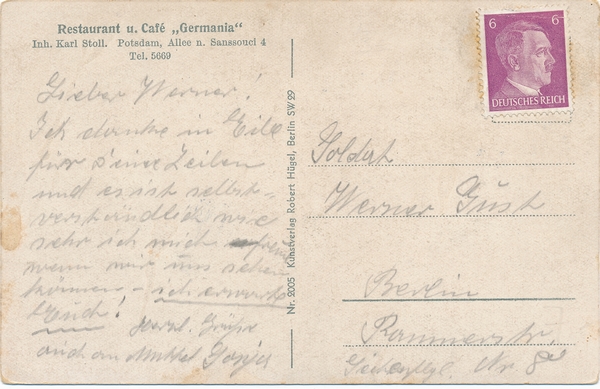 Restaurant u. Café „Germania“
Inh. Karl Stoll. Potsdam, Allee n. Sanssouci 4
Tel. 5669
Lieber Werner!
Ich danke in Eile
für Deine Zeilen
und es ist selbst-
verständlich wie
sehr ich mich freue
wenn wir uns sehen
können – ich erwarte
Euch! Herzl. Grüße
auch an
Nr. 2005 Kunstverlag Robert Hügel, Berlin SW 29
6 6
DEUTSCHES REICH
Soldat
Werner Gust
Berlin
Nr